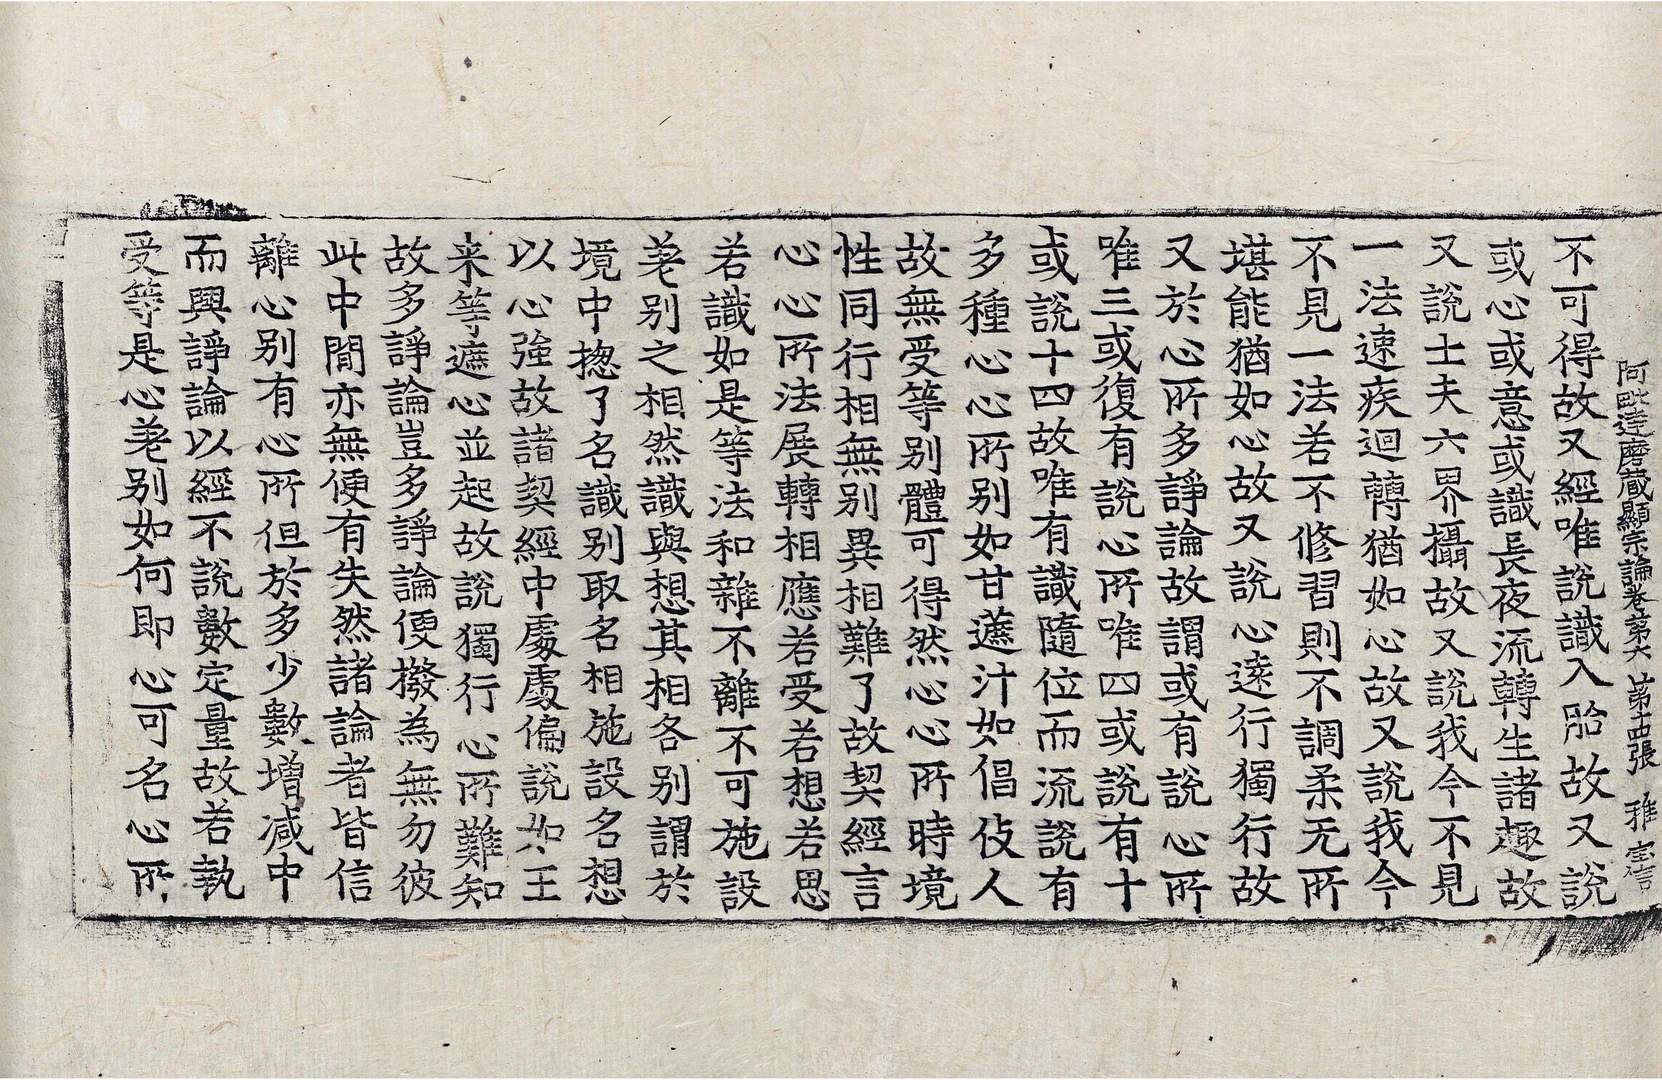 阿毗達磨藏顯宗論卷第六 第十四張 雅
不可得故又經唯說識入胎故又說
或心或意或識長夜流轉生諸趣故
又說士夫六界攝故又說我今不見
一法速疾迴轉猶如心故又說我今
不見一法若不修習則不調柔无所
堪能猶如心故又說心遠行獨行故
又於心所多諍論故謂或有說心所
唯三或復有說心所唯四或說有十
或說十四故唯有識隨位而流說有
多種心心所別如甘蔗汁如倡伎人
故無受等別體可得然心心所時境
性同行相無別異相難了故契經言
心心所法展轉相應若受若想若思
若識如是等法和雜不離不可施設
差別之相然識與想其相各別謂於
境中揔了名識別取名相施設名想
以心強故諸契經中處處偏說如王
来等遮心並起故說獨行心所難知
故多諍論豈多諍論便撥為無勿彼
此中閒亦無便有失然諸論者皆信
離心別有心所但於多少數增減中
而興諍論以經不說數定量故若執
受等是心差別如何即心可名心所